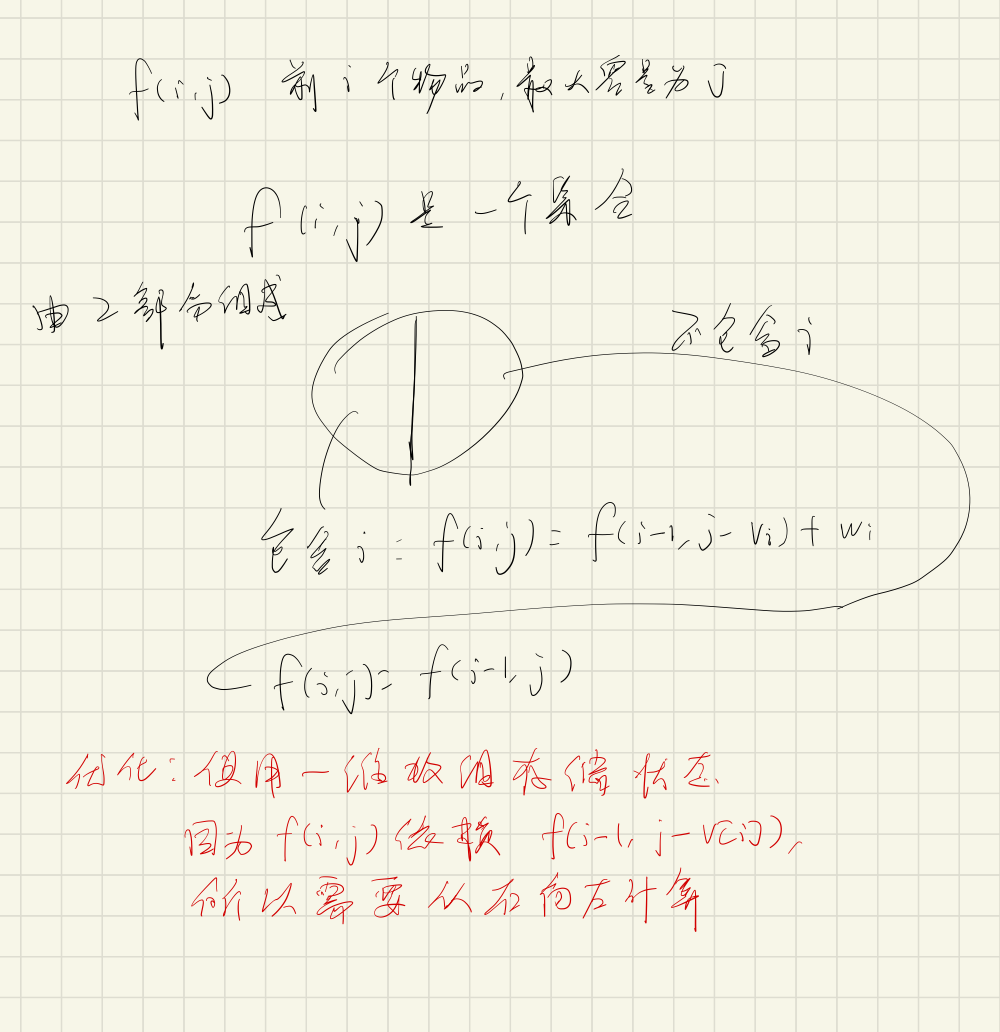 f(i,j) 前i个物品,最大容量为j
f(i,j)是一个集合
由2部分组成
不包含i
包含i: f(i,j)= f(i-1,j-vi)+wi
f(i,j)= f(i-1,j)
优化:使用一维数组存储状态.
因为f(i,j)依赖 f(i-1, j-v[i]),
所以需要从右向左计算